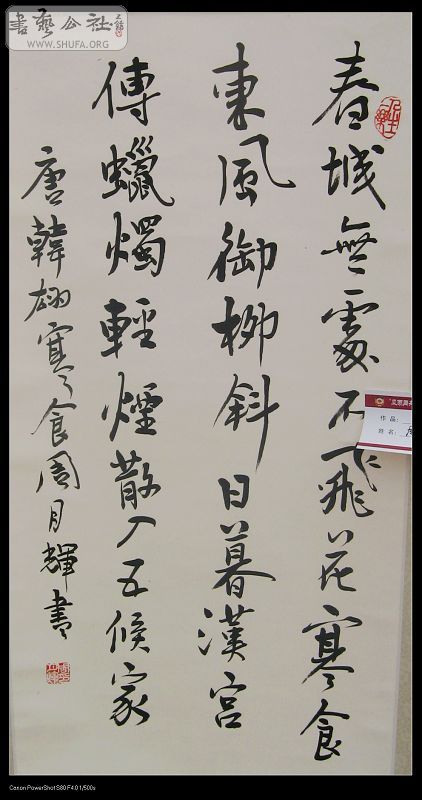 書藝公社
WWW.SHUFA.ORG
春城無處不飛花寒食
東風御柳斜日暮漢宮
傳蠟燭輕煙散入五候家
唐韓翃寒食周月輝書
作品:
姓名:
Canon PowerShot S80 F4.0 1/500s